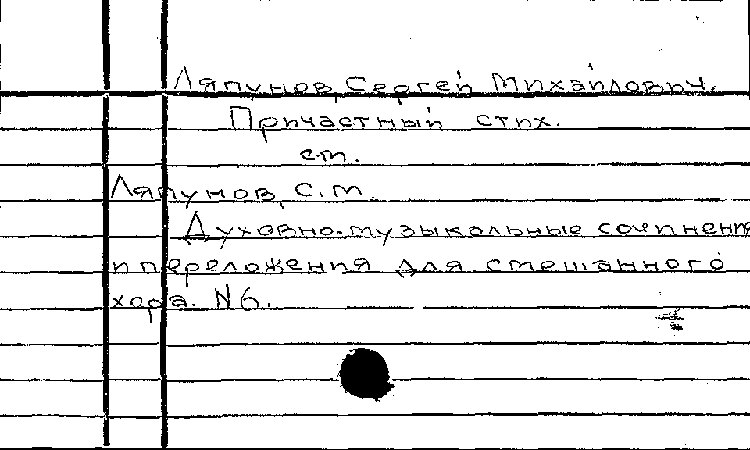 Ляпунов, Сергей Михайлович.
Причастный стих.
см.
Ляпунов, С.М.
Духовно-музыкальные сочинения
и переложения для смешанного
хора. N6.